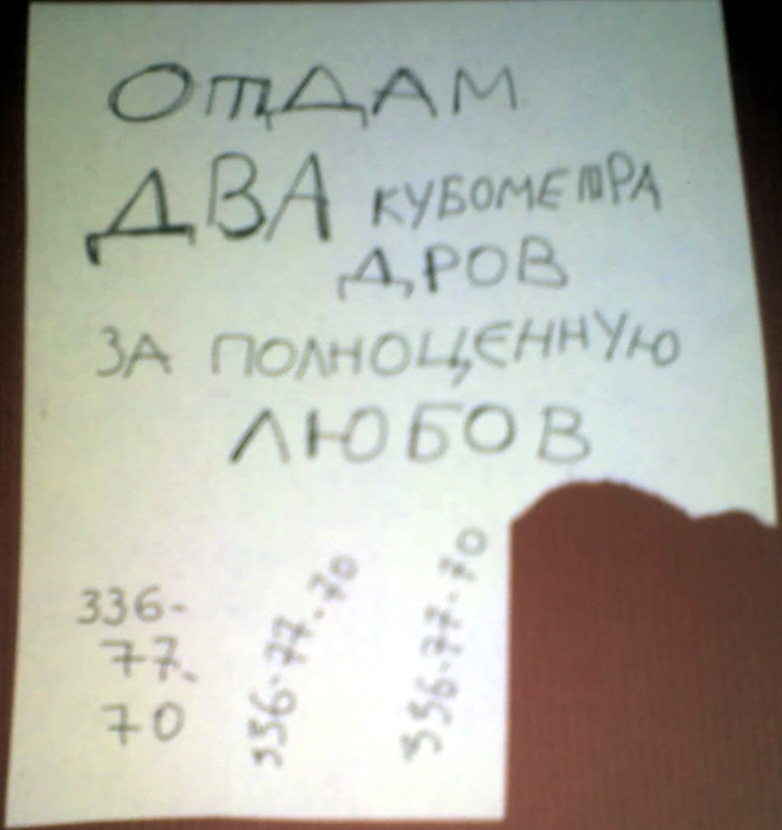 ОтДАМ
ДВА КУБОМЕтРА
ДРОВ
ЗА ПОЛНОЦЕННУЮ
ЛЮБОВ
336-
77-
70
336-77-70
336-77-70